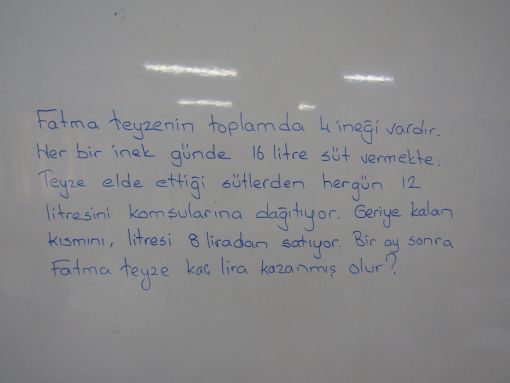 Fatma teyzenin toplamda 4 ineği vardır.
Her bir inek günde 16 litre süt vermekte.
Teyze elde ettiği sütlerden hergün 12
litresini komşularına dağıtıyor. Geriye kalan
kısmını, litresi 8 liradan satıyor. Bir ay sonra
Fatma teyze kaç lira kazanmış olur?